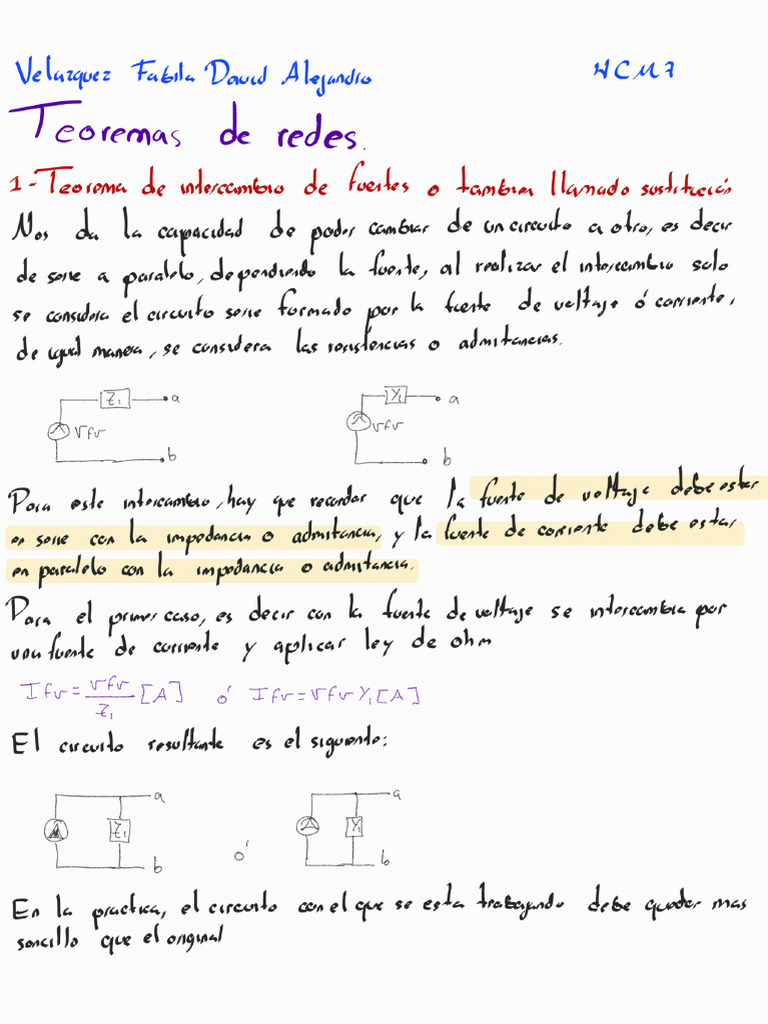 Velazquez Fabila David Alejandro 4CM7
Teoremas de redes.
1-Teorema de intercambio de fuentes o tambien llamado sustitución
Nos da la capacidad de poder cambiar de un circuito a otro, es decir
de serie a paralelo, dependiendo la fuente, al realizar el intercambio solo
se considera el circuito serie formado por la fuente de voltaje ó corriente,
de igual manera, se considera las resistencias o admitancias.
Z1 a
Vfv
b
Y1 a
Vfv
b
Para este intercambio, hay que recordar que la fuente de voltaje debe estar
en serie con la impedancia o admitancia, y la fuente de corriente debe estar
en paralelo con la impedancia o admitancia.
Para el primer caso, es decir con la fuente de voltaje se intercambia por
una fuente de corriente y aplicar ley de ohm
Ifv = Vfv/Z1 [A] ó Ifv = Vfv Y1 [A]
El circuito resultante es el siguiente:
a
Z1
b
ó
a
Y1
b
En la practica, el circuito con el que se esta trabajando debe quedar mas
sencillo que el original